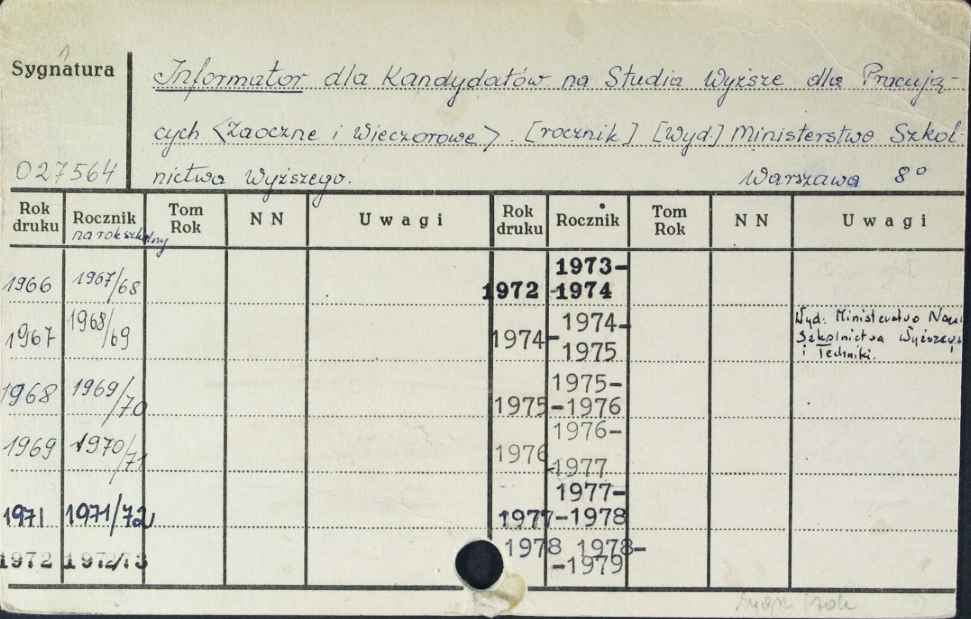 Sygnatura
Informator dla Kandydatów na Studia Wyższe dla Pracują-
cych <Zaoczne i Wieczorowe>. [rocznik] [Wyd.] Ministerstwo Szkol-
027564 nictwa Wyższego. Warszawa 8°
Rok druku Rocznik na rok szkolny Tom Rok NN Uwagi Rok druku Rocznik Tom Rok NN Uwagi
1966 1967/68 1972 1973-1974
1967 1968/69 1974 1974-1975 Wyd. Ministerstwo Nauki
Szkolnictwa Wyższego
i Techniki.
1968 1969/70 1975 1975-1976
1969 1970/71 1976 1976-1977
1971 1971/72 1977 1977-1978
1972 1972/73 1978 1978-1979